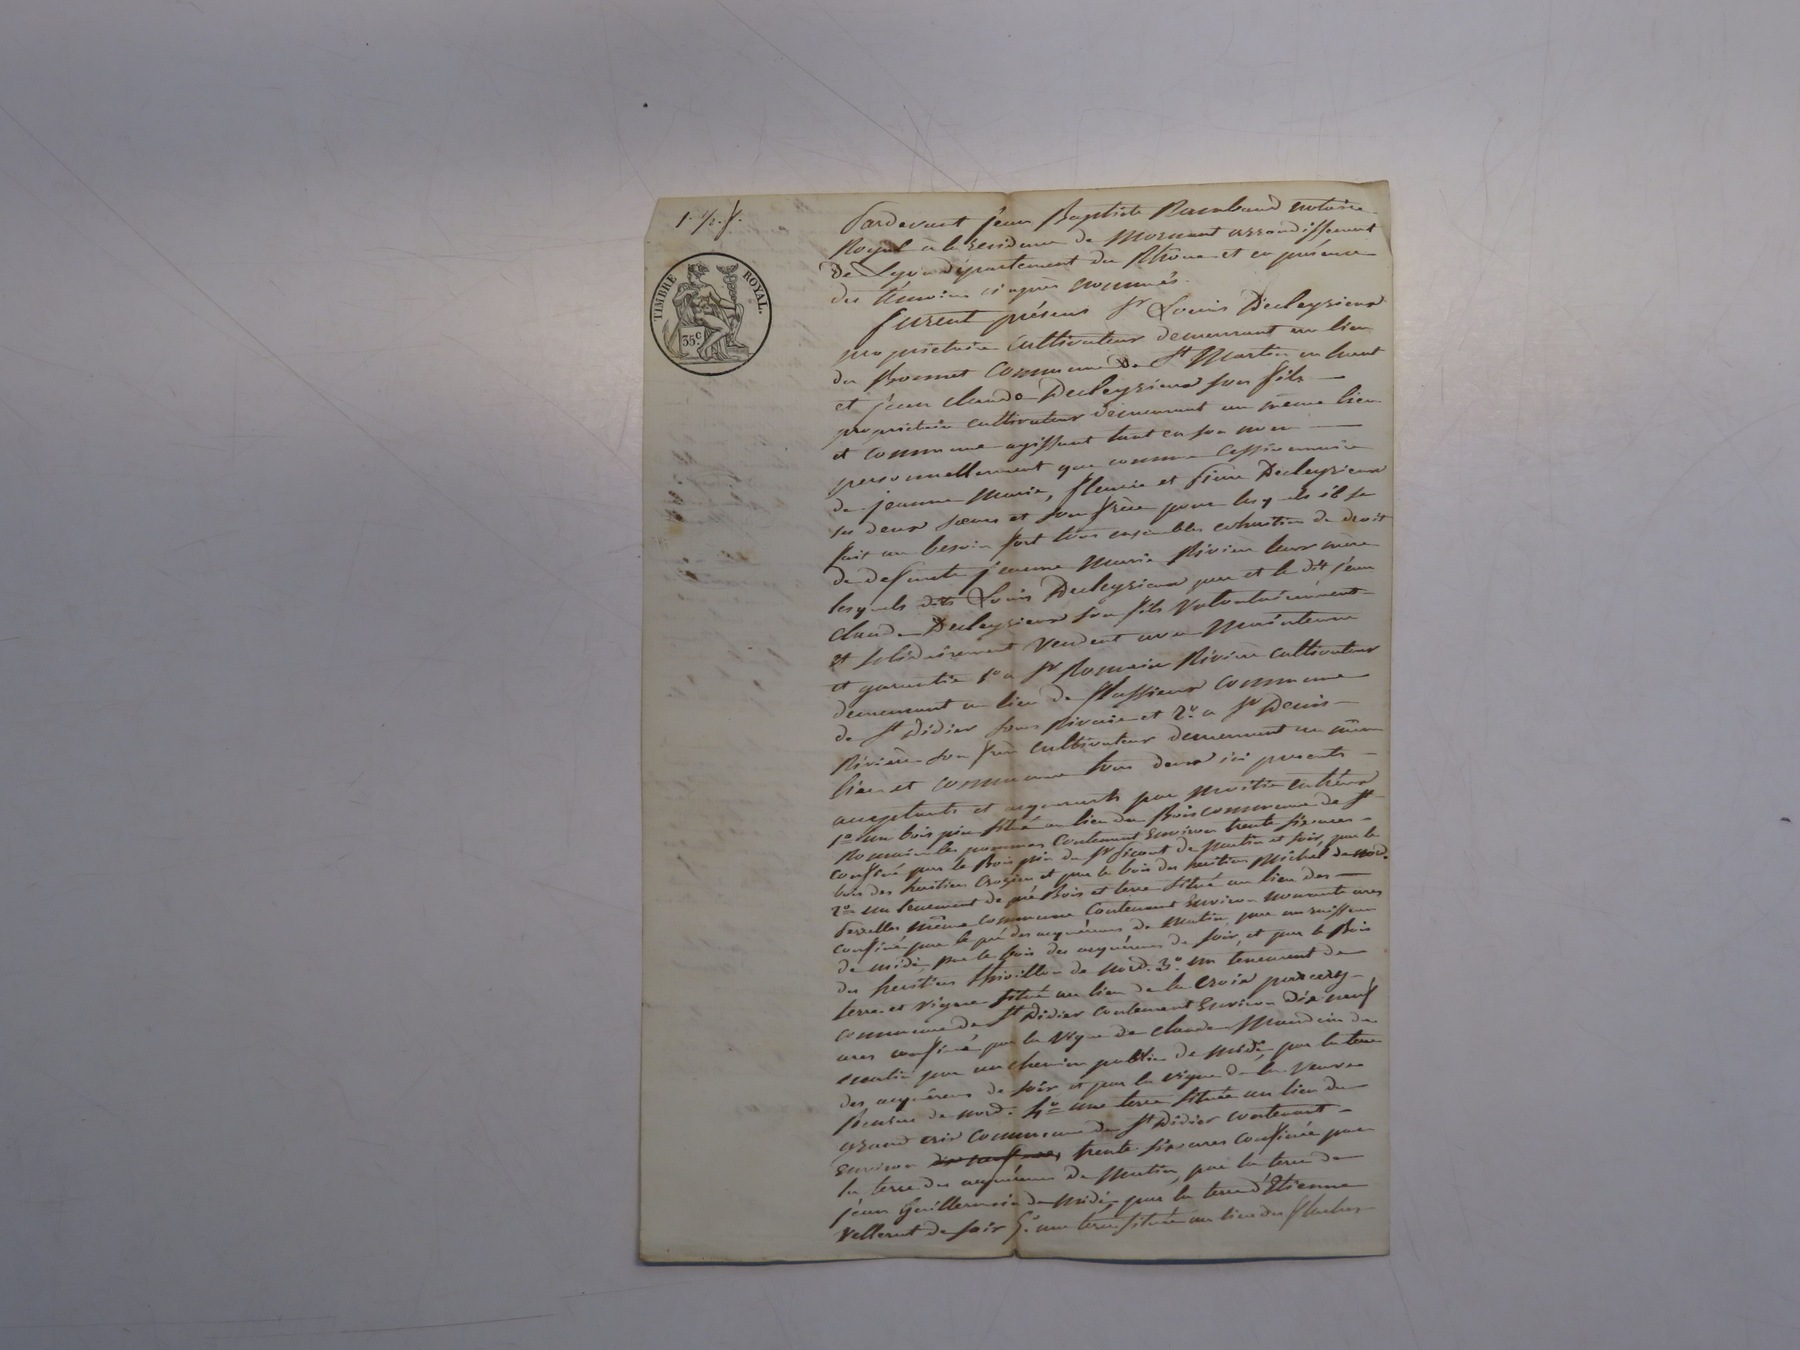 1. 1/2. f.
TIMBRE ROYAL.
35c
Pardevant jean Baptiste Rambaud notaire
Royal a la residence de Mornant arrondissement
De Lyon département du Rhône et en présence
des témoins ci après nommés.
furent présens Sr Louis Decleyzieux
propriétaire cultivateur demeurant au lieu
du Bonnet Commune De St Martin en haut
et jean claude Decleyzieux son fils
propriétaire cultivateur demeurant au même lieu
et commune agissant tant en son nom
personnellement que comme Cessionnaire
de jeanne Marie, fleurie et Decleyzieux
ses deux soeurs et son frère pour lesquels il se
fait au besoin fort tous ensembles cohéritiers de droit
de defunte jeanne Marie Rivière leur mère
lesquels dits Louis Decleyzieux père et le dit jean
claude Decleyzieux son fils volontairement
et solidairement vendent avec Maintenue
et garantie 1o a Sr Romain Rivière cultivateur
demeurant au lieu de commune
de St Didier sous Riverie et 2o a Sr Denis
Rivière son frère cultivateur demeurant au même
lieu et commune tous deux ici présents
acceptants et acquerants par moitié entreux
1o un bois pin situé au lieu du Bois commune de St
Romain contenant Environ trente six ares
confiné par le Bois pin du Sr de matin et soir, par le
bois des héritiers et par le bois des héritiers Michel de nord.
2o un tenement de pré Bois et terre situé au lieu des
même commune Contenant Environ nonante ares
confiné par le pré des acquéreurs de Matin, par un ruisseau
de midi, par le bois des acquéreurs de soir, et par le Bois
des héritiers Thivillon de nord. 3o un tenement de
terre et Vigne situé au lieu de la Croix
commune de St Didier contenant Environ Dix neuf
ares confiné par la Vigne de claude de
matin par un chemin public de Midi, par la terre
des acquéreurs de soir et par la vigne de la Veuve
de nord. 4o une terre située au lieu du
grand commune de St Didier contenant
Environ trente six ares confinée par
la terre des acquéreurs de Matin, par la terre de
jean Guillermain de Midi, par la terre d'Etienne
Villerut de soir 5o une terre située au lieu des